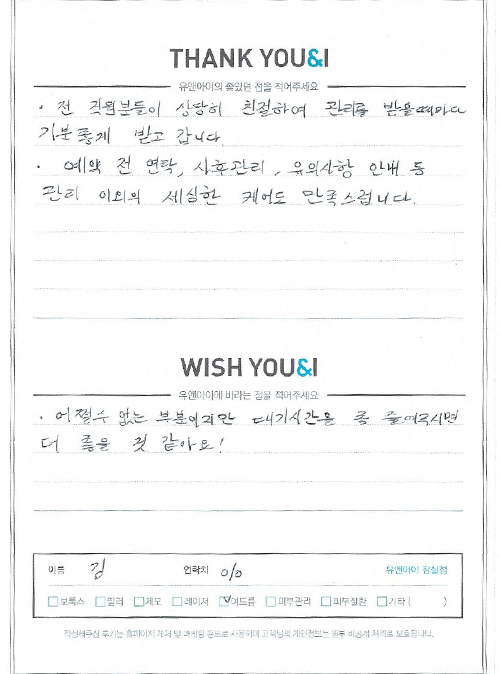 THANK YOU&I
유앤아이의 좋았던 점을 적어주세요
· 전 직원분들이 상당히 친절하여 관리를 받을때마다
기분좋게 받고 갑니다.
· 예약 전 연락, 사후관리, 유의사항 안내 등
관리 이외의 세심한 케어도 만족스럽니다.
WISH YOU&I
유앤아이에 바라는 점을 적어주세요
· 어쩔수 없는 부분이지만 대기시간을 좀 줄여주시면
더 좋을 것 같아요!
이름 김 연락처 010 유앤아이 잠실점
보톡스 필러 제모 레이저 여드름 피부관리 피부질환 기타 ( )
작성해주신 후기는 홈페이지 게재 및 마케팅 용도로 사용되며 고객님의 개인정보는 일부 비공개 처리로 보호됩니다.